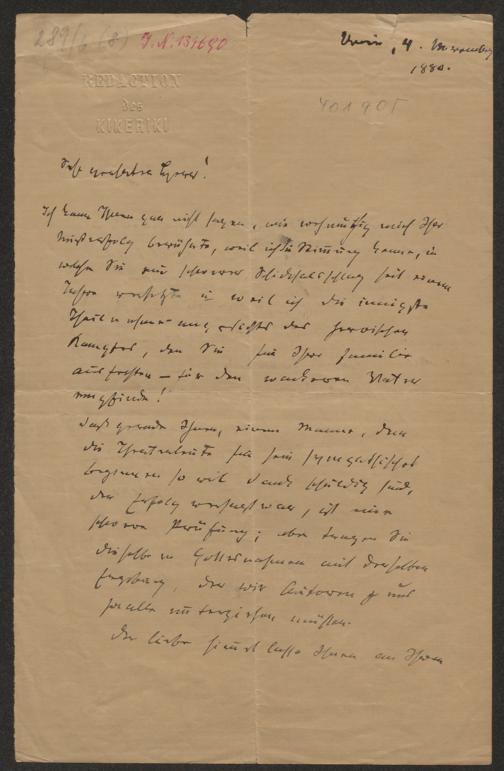 289/6 (8) J.N. 131690
Wien, 4. November
1880.
REDACTION
des
KIKERIKI
401905
Sehr geehrter Herr!
Ich kann Ihnen gar nicht sagen, wie wehmütig mich Ihr
Mißerfolg berührte, weil ich die Stimmung kenne, in
welche Sie ein schwerer Schicksalsschlag seit einem
Jahre versetzte u weil ich die innigste
Theilnahme angesichts des heroischen
Kampfes, den Sie für Ihre Familie
ausfechten – für den wackeren Vater
empfinde!
Daß gerade Ihnen, einem Manne, dem
die Theaterleute für sein sympathisches
so viel Dank schuldig sind,
der Erfolg versagt war, ist eine
schwere Prüfung; aber tragen Sie
dieselbe in Gottesnahmen mit derselben
Ergebung, der wir Autoren uns
ja alle unterziehen müssen.
Der liebe Himmel lasse Ihnen an Ihren